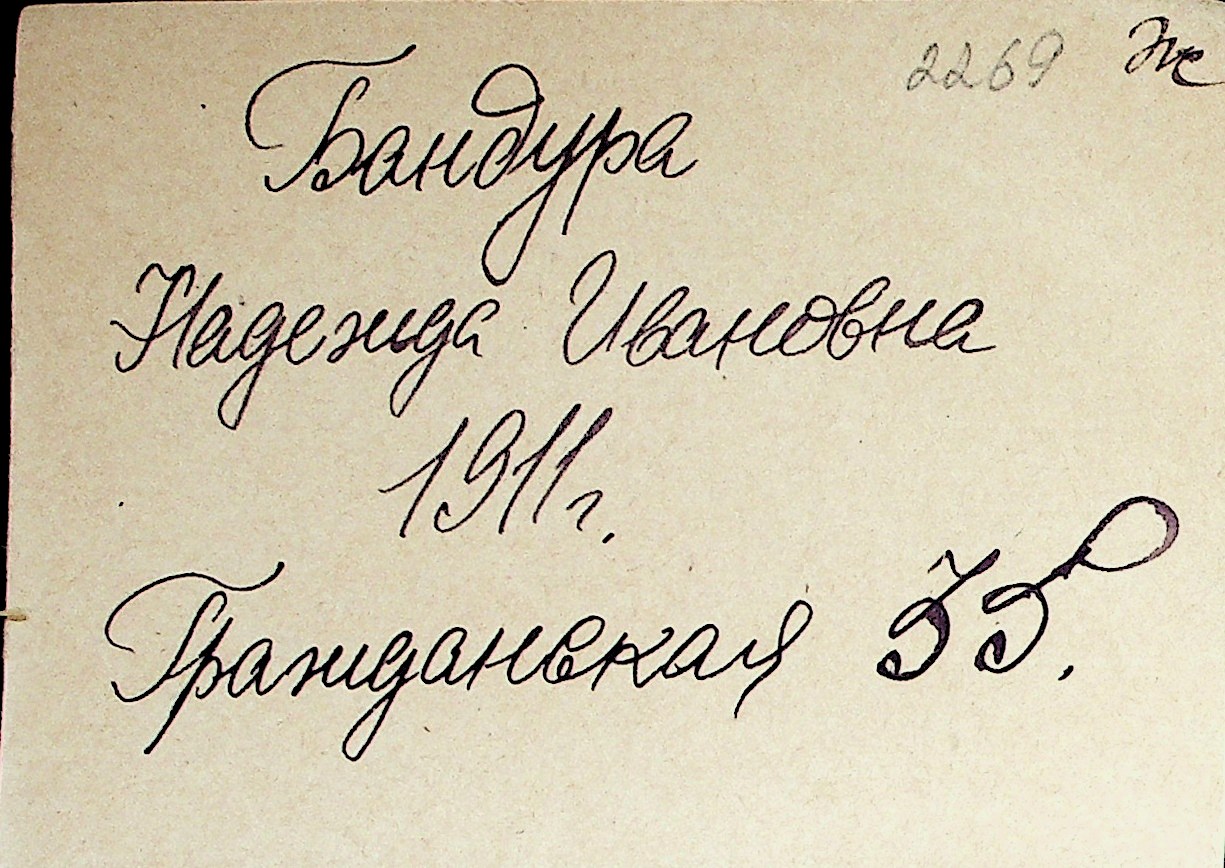 2269 Ж
Бандура
Надежда Ивановна
1911г.
Гражданская 35.